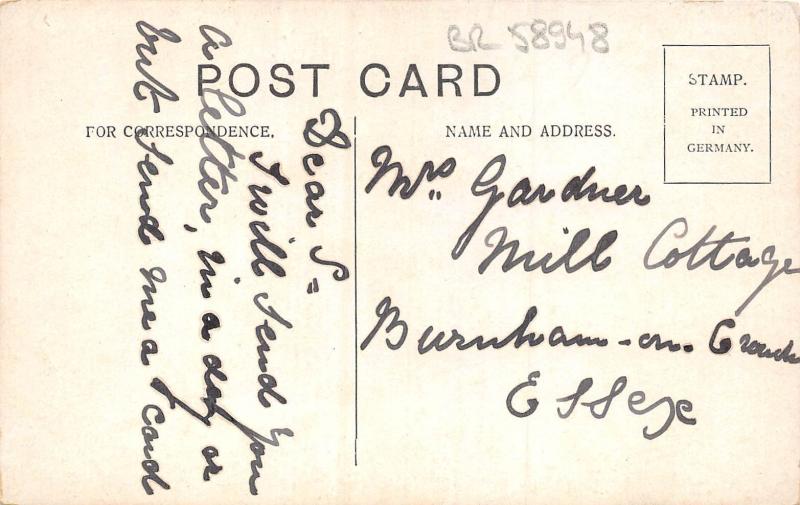 BR 58948
POST CARD
FOR CORRESPONDENCE.
NAME AND ADDRESS.
STAMP.
PRINTED
IN
GERMANY.
Dear S =
I will send you
a letter, in a day or
but send me a card
Mrs Gardner
Mill Cottage
Burnham-on-Crouch
Essex